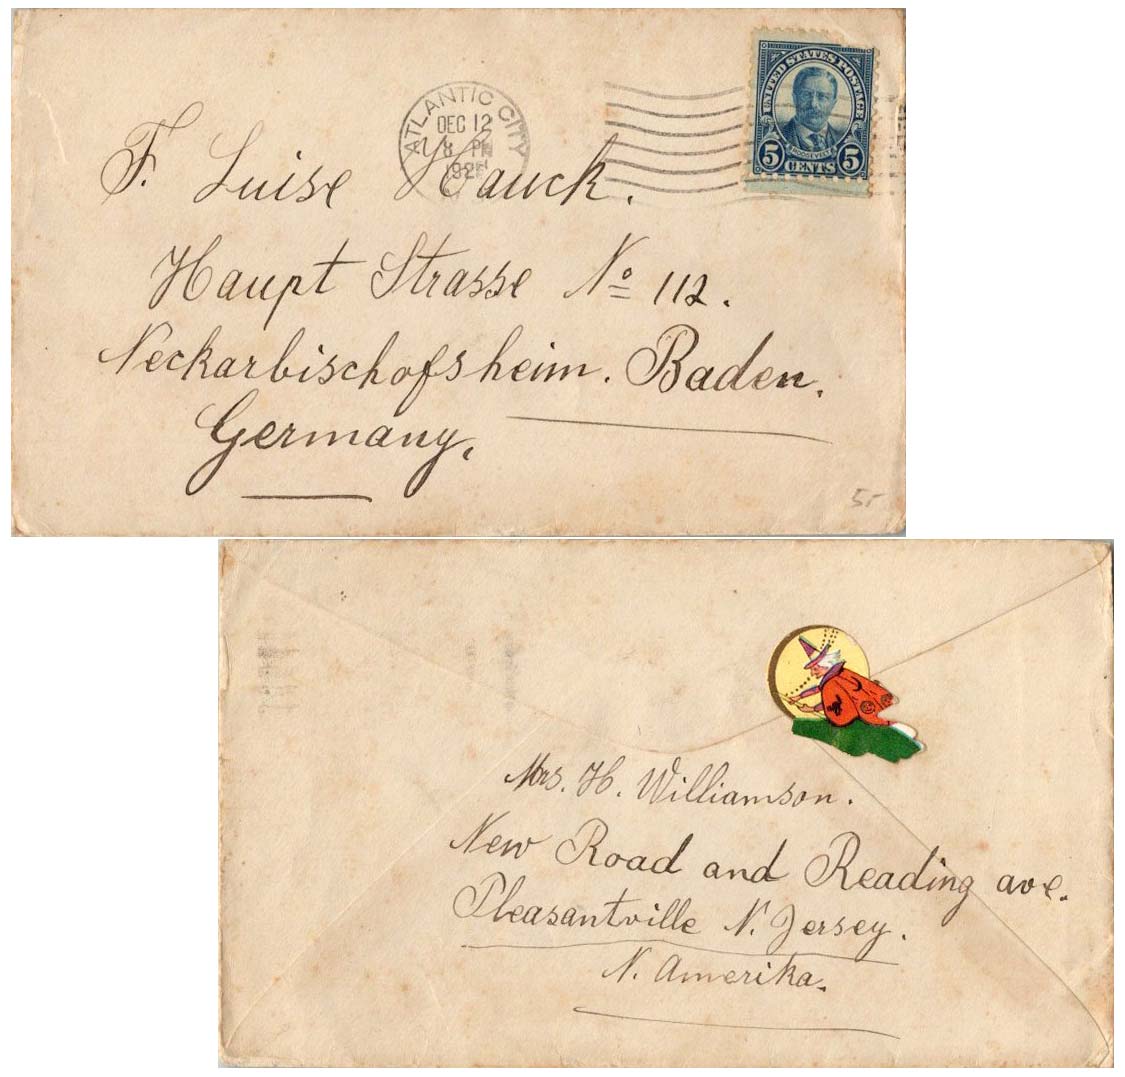 ATLANTIC CITY
DEC 12
8 PM
UNITED STATES POSTAGE
ROOSEVELT
5 CENTS 5
F. Luise Hauck.
Haupt Strasse No 112.
Neckarbischofsheim. Baden.
Germany.
Mrs. H. Williamson.
New Road and Reading ave.
Pleasantville N. Jersey.
N. Amerika.